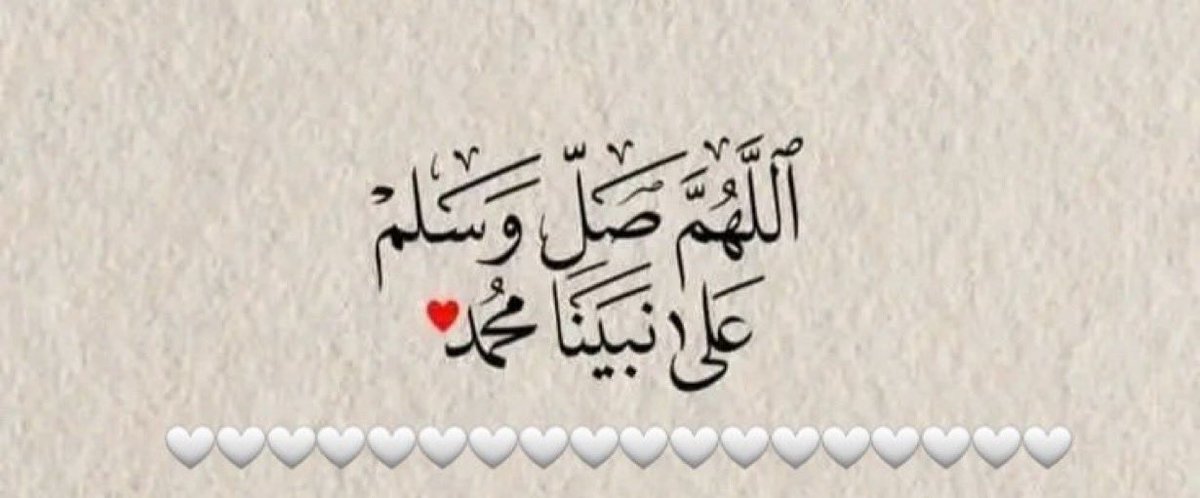 ٱللَّهُمَّ صَلِّ وَسَلِمْ
عَلَى نَبِيَنَا مُحمد❤️
🤍🤍🤍🤍🤍🤍🤍🤍🤍🤍🤍🤍🤍🤍🤍🤍🤍🤍